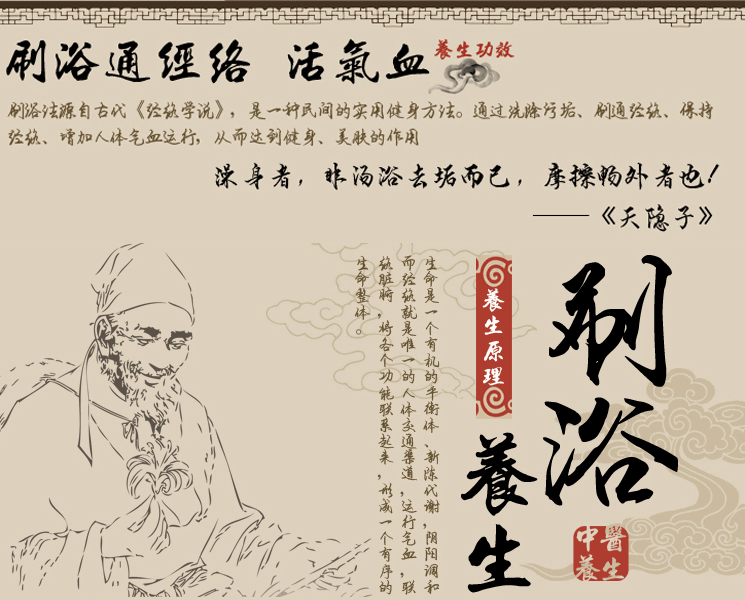 刷浴通經络 活氣血
養生功效
刷浴法源自古代《经络学说》，是一种民间的实用健身方法。通过洗除污垢、刷通经络、保持
经络、增加人体气血运行，从而达到健身、美肤的作用
澡身者，非汤浴去垢而已，摩擦畅外者也！
——《天隐子》
刷浴
養生
養生原理
生命是一个有机的平衡体、新陈代谢，阴阳调和
而经络就是唯一的人体交通渠道，运行气血，联
络脏腑，将各个功能联系起来，形成一个有序的
生命整体。
中醫
養生